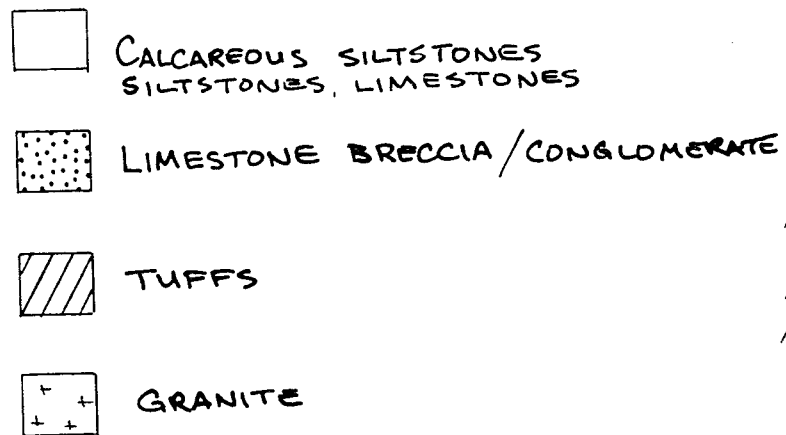 CALCAREOUS SILTSTONES
SILTSTONES, LIMESTONES
LIMESTONE BRECCIA/CONGLOMERATE
TUFFS
GRANITE